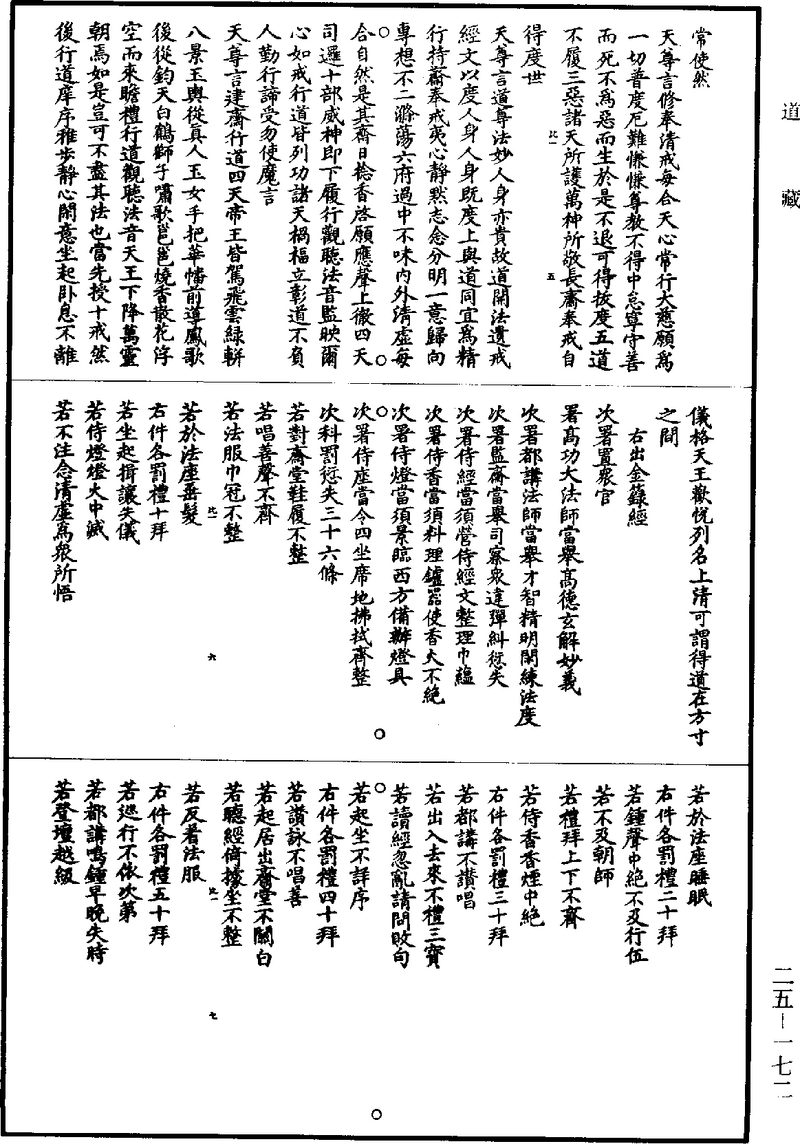 道藏
常使然
天尊言修奉清戒每合天心常行大慈願爲
一切普度厄難慊慊尊教不得中怠寧守善
而死不爲惡而生於是不退可得拔度五道
不履三惡諸天所護萬神所敬長齋奉戒自
得度世
比一
五
天尊言道尊法妙人身亦貴故道開法遺戒
經文以度人身人身既度上與道同宜爲精
行持齋奉戒夷心靜默志念分明一意歸向
專想不二滌蕩六府過中不味內外清虛每
合自然是其齋日捻香啓願應聲上徹四天
司邏十部威神即下履行觀聽法音監映爾
心如戒行道皆列功諸天禍福立彰道不負
人勤行諦受勿使魔言
天尊言建齋行道四天帝王皆駕飛雲綠軿
八景玉輿從真人玉女手把華幡前導鳳歌
後從鈞天白鶴獅子嘯歌邕邕燒香散花浮
空而來瞻禮行道觀聽法音天王下降萬靈
朝焉如是豈可不盡其法也當先授十戒然
後行道庠序雅步靜心閑意坐起臥息不離
儀格天王歡悅列名上清可謂得道在方寸
之間
右出金籙經
次署置衆官
署高功大法師當舉高德玄解妙義
次署都講法師當舉才智精明閑練法度
次署監齋當舉司察衆違彈糾愆失
次署侍經當須營侍經文整理巾蘊
次署侍香當須料理鑪器使香火不絕
次署侍燈當須景臨西方備辦燈具
次署侍座當令四坐席地拂拭齊整
次科罰愆失三十六條
若對齋堂鞋履不整
若唱善聲不齊
若法服巾冠不整
比一
六
若於法座垂髮
右件各罰禮十拜
若坐起揖讓失儀
若侍燈燈火中滅
若不注念清虛爲衆所悟
若於法座睡眠
右件各罰禮二十拜
若鍾聲中絕不及行伍
若不及朝師
若禮拜上下不齊
若侍香香煙中絕
右件各罰禮三十拜
若都講不讚唱
若出入去來不禮三寶
若讀經忽亂請問敗句
若起坐不詳序
右件各罰禮四十拜
若讚詠不唱善
若起居出齋堂不關白
若聽經倚據坐不整
比一
七
若反着法服
右件各罰禮五十拜
若巡行不依次第
若都講鳴鍾早晚失時
若登壇越級
二五—一七二